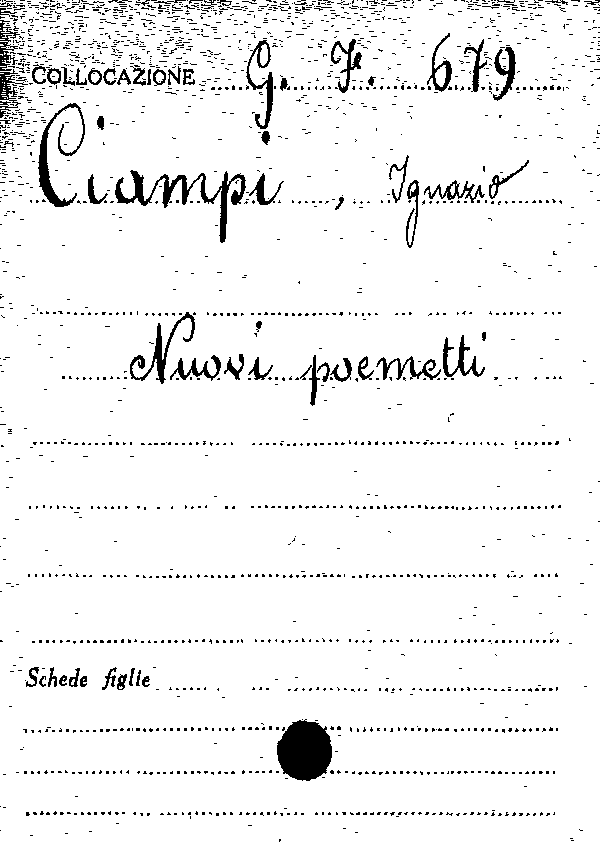 COLLOCAZIONE G. F. 679
Ciampi, Ignazio
Nuovi poemetti
Schede figlie